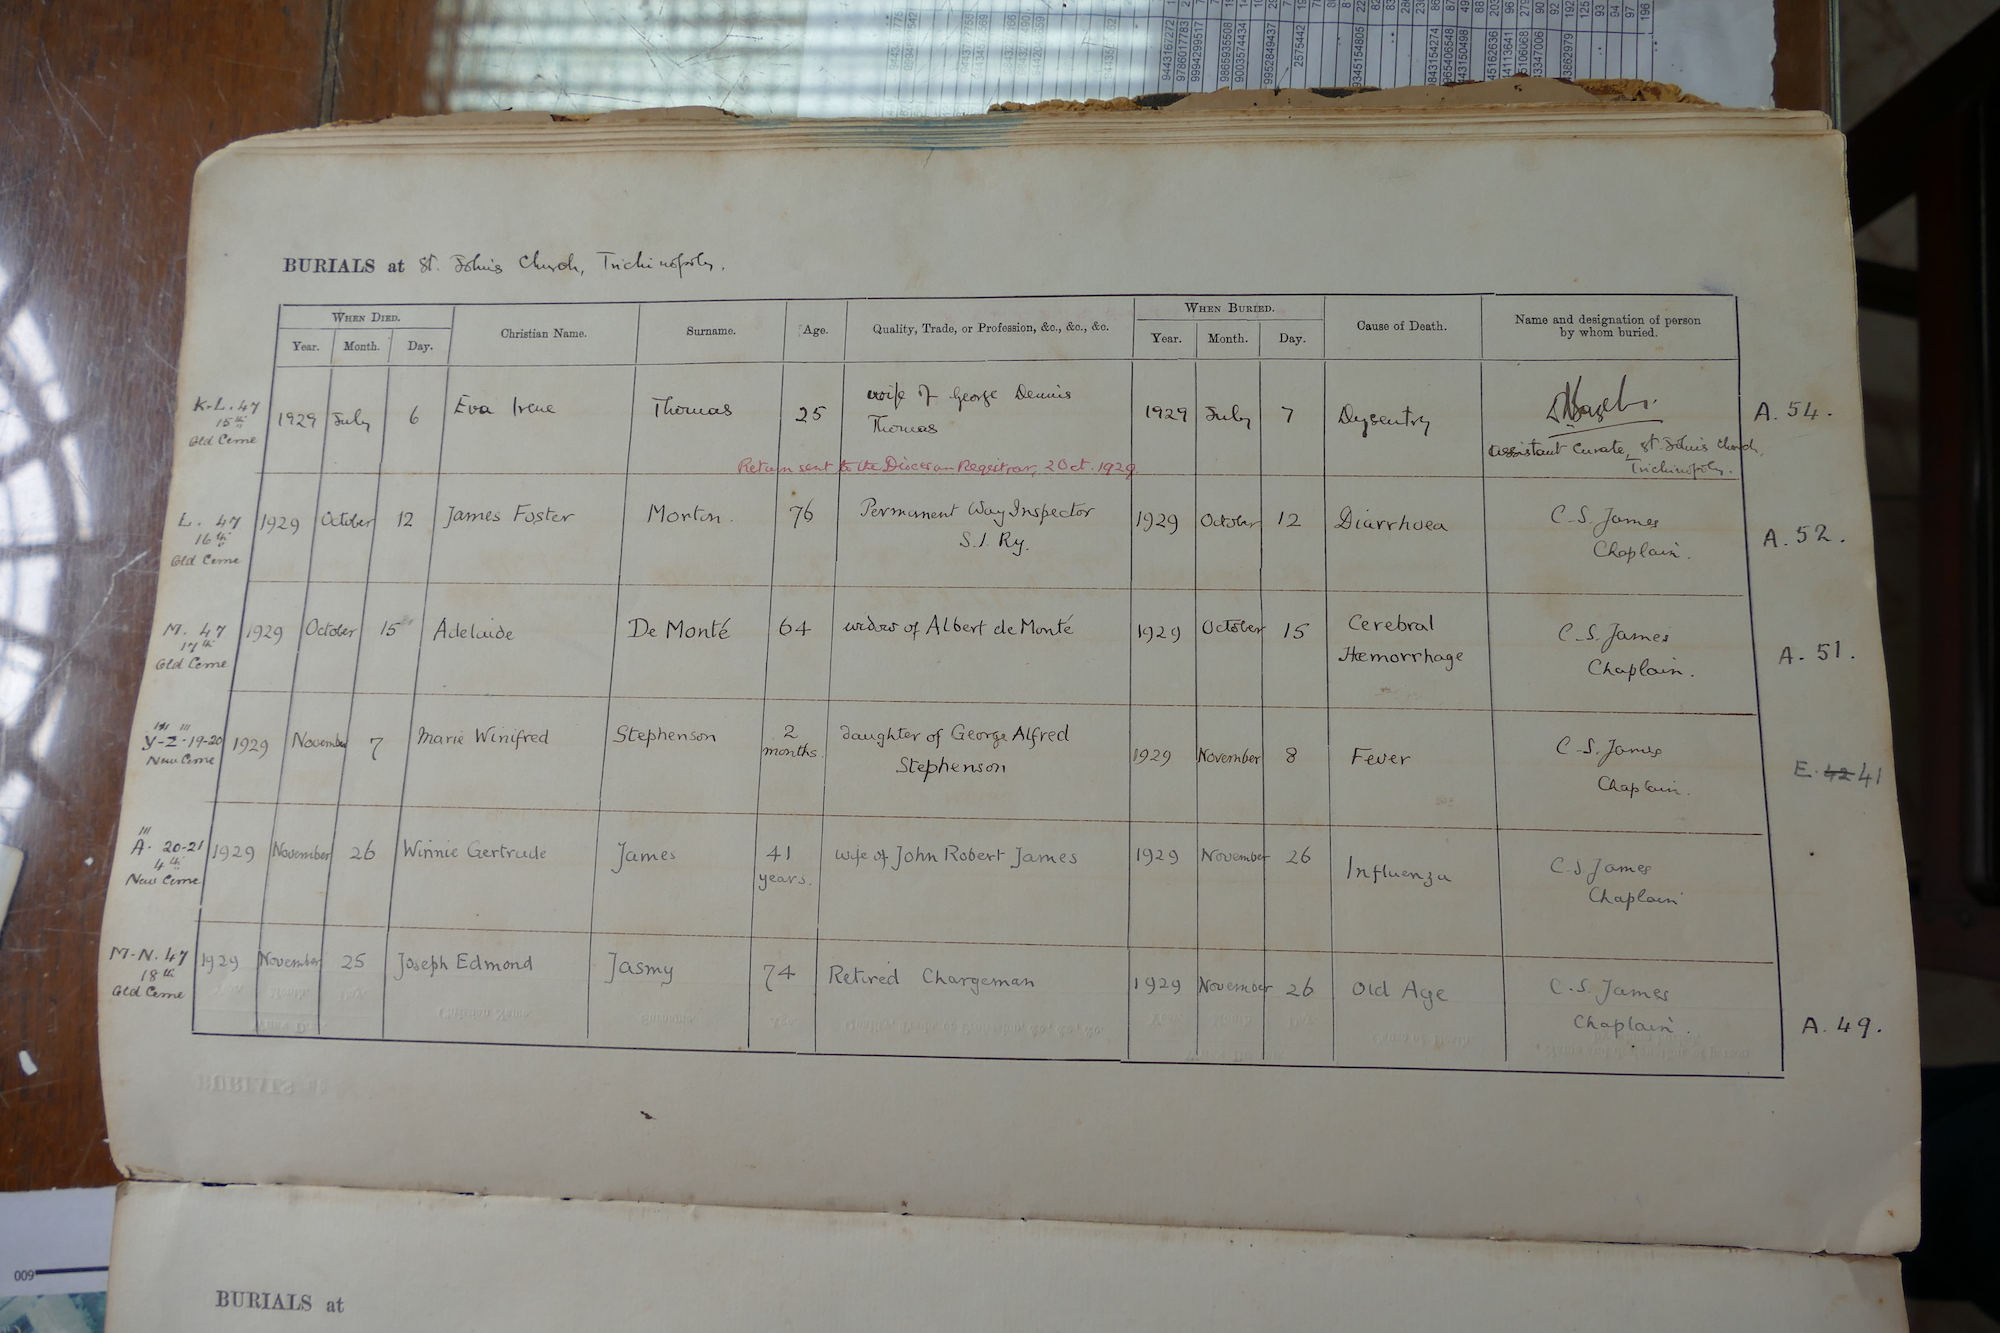 BURIALS at St. John's Church, Trichinopoly.
WHEN DIED. Christian Name. Surname. Age. Quality, Trade, or Profession, &c., &c., &c. WHEN BURIED. Cause of Death. Name and designation of person by whom buried.
Year. Month. Day. Year. Month. Day.
K-L. 47 1929 July 6 Eva Irene Thomas 25 wife of George Dennis 1929 July 7 Dysentry A. 54.
15th Thomas
Old Ceme assistant Curate, St. John's Church,
Return sent to the Diocesan Registrar, 2 Oct. 1929. Trichinopoly.
L. 47 1929 October 12 James Foster Morton. 76 Permanent Way Inspector 1929 October 12 Diarrhoea C. S. James A. 52.
16th S.I. Ry. Chaplain.
Old Ceme
M. 47 1929 October 15 Adelaide De Monté 64 widow of Albert de Monté 1929 October 15 Cerebral C. S. James A. 51.
17th Hæmorrhage Chaplain.
Old Ceme
Y-Z 19-20 1929 November 7 Marie Winifred Stephenson 2 daughter of George Alfred 1929 November 8 Fever C. S. James E. 42 41
New Ceme months. Stephenson Chaplain.
A. 20-21 1929 November 26 Winnie Gertrude James 41 wife of John Robert James 1929 November 26 Influenza C. S James
4th years. Chaplain
New Ceme
M-N. 47 1929 November 25 Joseph Edmond Jasmy 74 Retired Chargeman 1929 November 26 Old Age C. S. James
18th Chaplain. A. 49.
Old Ceme
BURIALS at
009